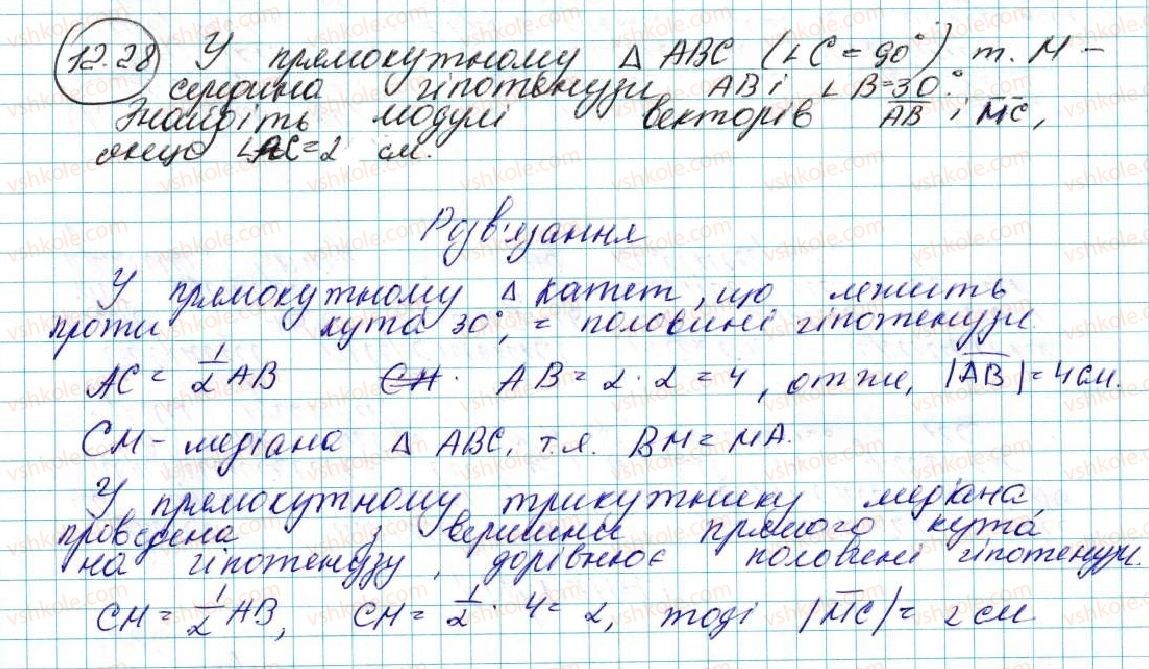 12.28 У прямокутному △ ABC (∠C = 90°) т. M –
середина гіпотенузи AB і ∠B=30°.
Знайдіть модулі векторів A̅B̅ і M̅C̅,
якщо AC=2 см.
Розв'язання
У прямокутному △ катет, що лежить
проти кута 30°, = половині гіпотенузи.
AC = 1/2 AB AB = 2 · 2 = 4, отже, |A̅B̅| = 4 см.
CM – медіана △ ABC, т.я. BM = MA.
У прямокутному трикутнику медіана,
проведена з вершини прямого кута
на гіпотенузу, дорівнює половині гіпотенузи.
CM = 1/2 AB, CM = 1/2 · 4 = 2, тоді |M̅C̅| = 2 см
vshkole.com